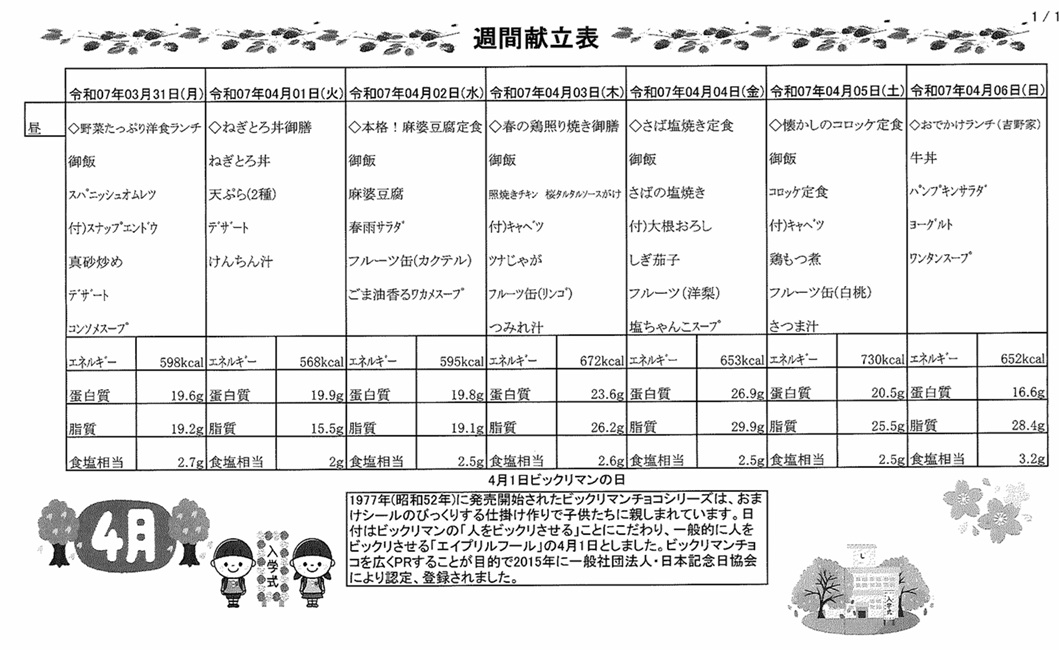 1 / 1
週間献立表
令和07年03月31日(月) 令和07年04月01日(火) 令和07年04月02日(水) 令和07年04月03日(木) 令和07年04月04日(金) 令和07年04月05日(土) 令和07年04月06日(日)
昼 ◇野菜たっぷり洋食ランチ ◇ねぎとろ丼御膳 ◇本格！麻婆豆腐定食 ◇春の鶏照り焼き御膳 ◇さば塩焼き定食 ◇懐かしのコロッケ定食 ◇おでかけランチ(吉野家)
御飯 ねぎとろ丼 御飯 御飯 御飯 御飯 牛丼
ｽﾊﾟﾆｯｼｭｵﾑﾚﾂ 天ぷら(2種) 麻婆豆腐 照焼きﾁｷﾝ 桜ﾀﾙﾀﾙｿｰｽがけ さばの塩焼き ｺﾛｯｹ定食 ﾊﾟﾝﾌﾟｷﾝｻﾗﾀﾞ
付)ｽﾅｯﾌﾟｴﾝﾄﾞｳ ﾃﾞｻﾞｰﾄ 春雨ｻﾗﾀﾞ 付)ｷｬﾍﾞﾂ 付)大根おろし 付)ｷｬﾍﾞﾂ ﾖｰｸﾞﾙﾄ
真砂炒め けんちん汁 フルーツ缶(カクテル) ﾂﾅじゃが しぎ茄子 鶏もつ煮 ﾜﾝﾀﾝｽｰﾌﾟ
ﾃﾞｻﾞｰﾄ ごま油香るﾜｶﾒｽｰﾌﾟ ﾌﾙｰﾂ缶(ﾘﾝｺﾞ) フルーツ(洋梨) フルーツ缶(白桃)
ｺﾝｿﾒｽｰﾌﾟ つみれ汁 塩ちゃんこｽｰﾌﾟ さつま汁
ｴﾈﾙｷﾞｰ 598kcal ｴﾈﾙｷﾞｰ 568kcal ｴﾈﾙｷﾞｰ 595kcal ｴﾈﾙｷﾞｰ 672kcal ｴﾈﾙｷﾞｰ 653kcal ｴﾈﾙｷﾞｰ 730kcal ｴﾈﾙｷﾞｰ 652kcal
蛋白質 19.6g 蛋白質 19.9g 蛋白質 19.8g 蛋白質 23.6g 蛋白質 26.9g 蛋白質 20.5g 蛋白質 16.6g
脂質 19.2g 脂質 15.5g 脂質 19.1g 脂質 26.2g 脂質 29.9g 脂質 25.5g 脂質 28.4g
食塩相当 2.7g 食塩相当 2g 食塩相当 2.5g 食塩相当 2.6g 食塩相当 2.5g 食塩相当 2.5g 食塩相当 3.2g
4月1日ビックリマンの日
1977年(昭和52年)に発売開始されたビックリマンチョコシリーズは、おま
けシールのびっくりする仕掛け作りで子供たちに親しまれています。日
付はビックリマンの「人をビックリさせる」ことにこだわり、一般的に人を
ビックリさせる「エイプリルフール」の4月1日としました。ビックリマンチョ
コを広くPRすることが目的で2015年に一般社団法人・日本記念日協会
により認定、登録されました。
4月
入学式
入学式